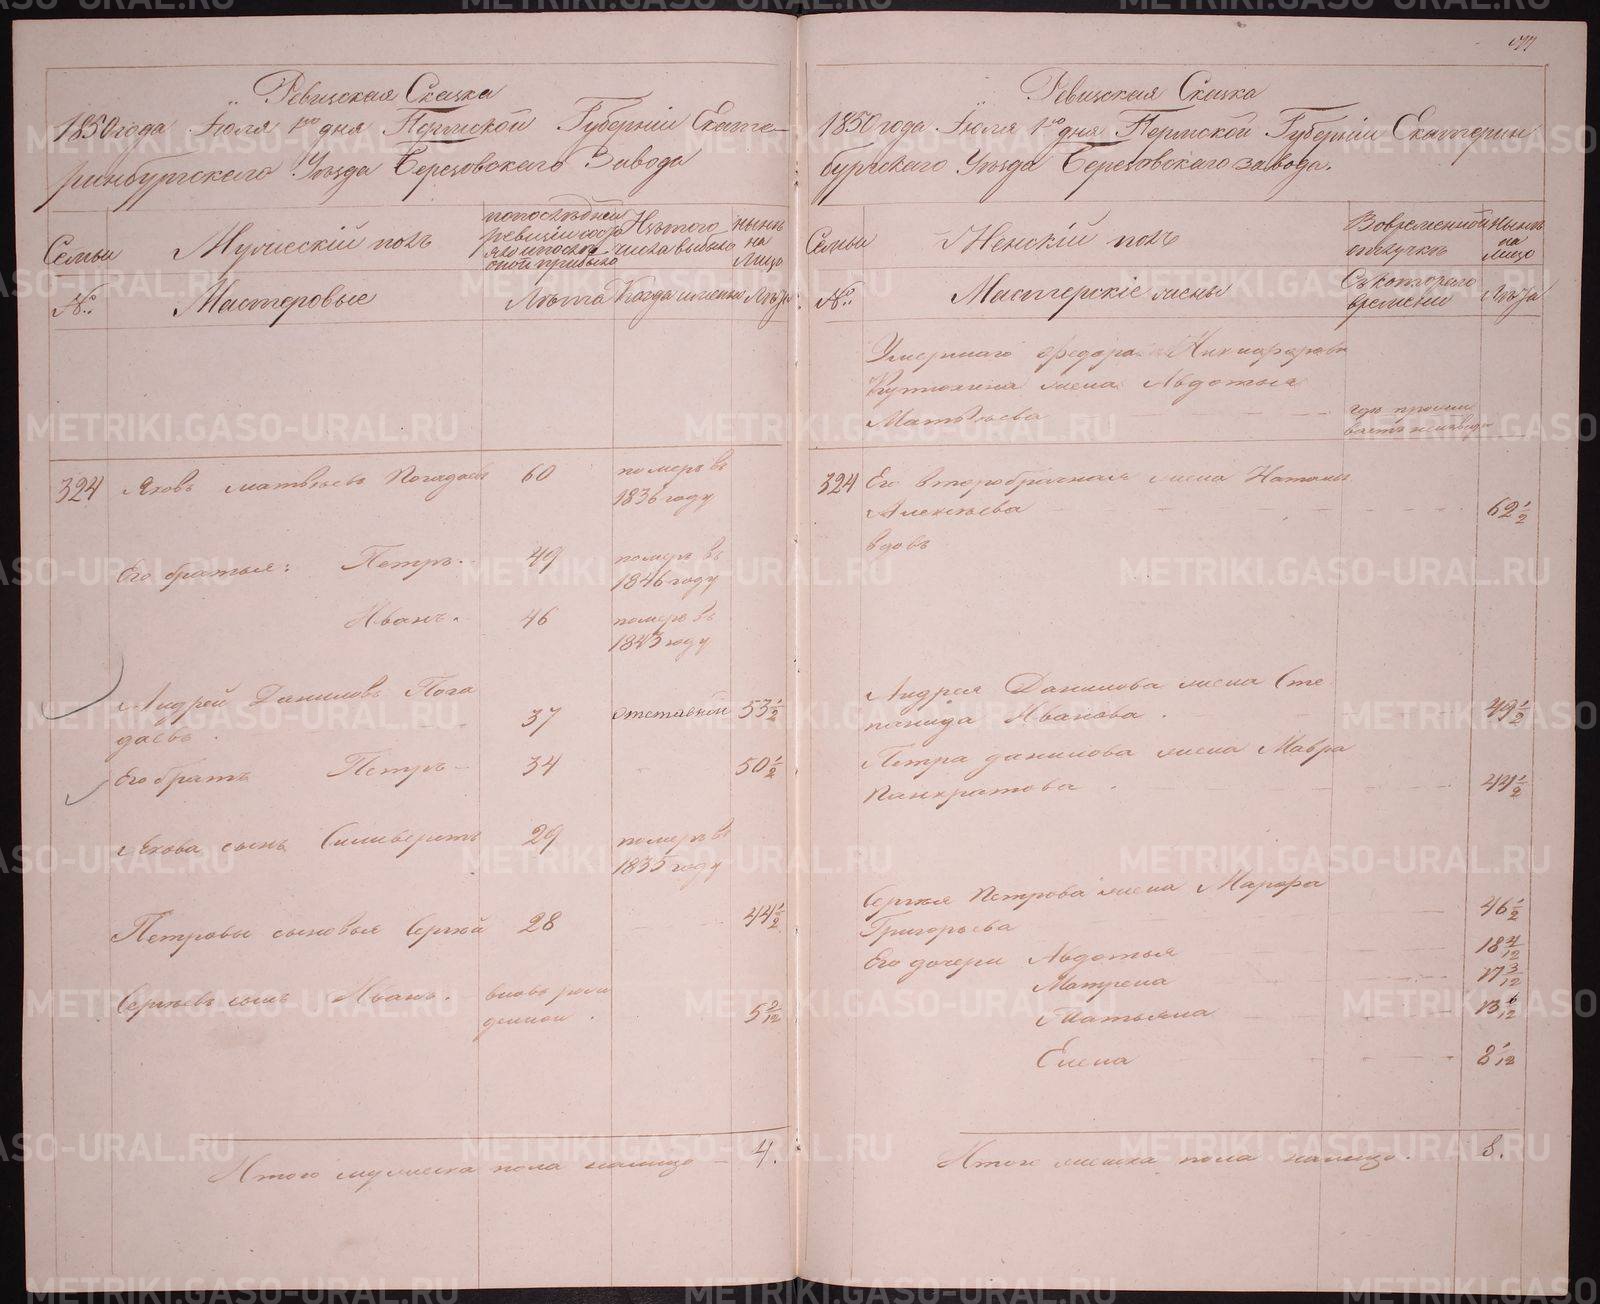 Ревизская Сказка
1850 года Іюля 1го дня Пермской Губерніи Екате-
ринбургскаго Уѣзда Березовскаго Завода
Семьи
Мужескій полъ
Изъ того
числа выбыло
нынѣ
на
лицо
№:
Мастеровые
Лѣта
Когда именно
Лѣта
324 Яковъ Матвѣевъ Погадаевъ 60 померъ въ
1836 году
Его братья: Петръ. 49 померъ въ
1846 году
Иванъ. 46 померъ въ
1843 году
Андрей Даниловъ Пога
даевъ. 37 отставной 53 1/2
Его братъ Петръ 34 50 1/2
Якова сынъ Силиверстъ 29 померъ въ
1835 году
Петровы сыновья Сергѣй 28 44 1/2
Сергѣевъ сынъ Иванъ. вновь рож
денной. 5 2/12
Итого мужеска пола налицо 4.
Ревизская Сказка
1850 года Іюля 1го дня Пермской Губерніи Екатерин
бургскаго Уѣзда Березовскаго завода.
Семьи
Женскій полъ
Во временной
отлучкѣ
нынѣ
на
лицо
№:
Мастерскіе жены
Съ котораго
времени
Лѣта
Умершаго Федора Никифорова
Кутюхина жена Авдотья
Матвѣева
гдѣ прожи
ваетъ неизвѣстно
324 Его второбрачная жена Наталья
Алексѣева 62 1/2
вдовъ
Андрея Данилова жена Сте
панида Иванова. 49 1/2
Петра Данилова жена Мавра
Панкратова. 44 1/2
Сергѣя Петрова жена Марфа
Григорьева 46 1/2
Его дочери Авдотья 18 4/12
Матрена 17 3/12
Татьяна 13 6/12
Елена 8 1/12
Итого женска пола налицо. 8.
METRIKI.GASO-URAL.RU